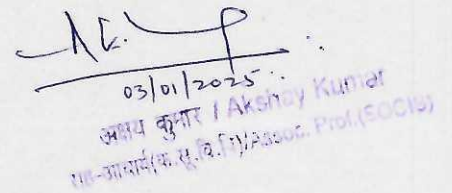 03/01/2025
अक्षय कुमार / Akshay Kumar
सह-आचार्य(क.सू.वि.वि)/Assoc. Prof.(SOCIS)